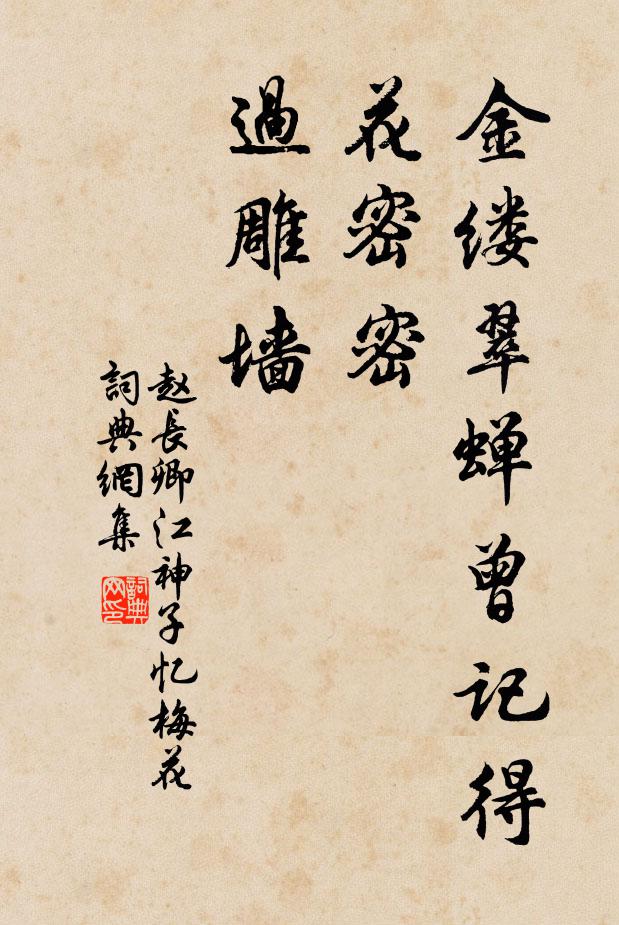 金缕翠蝉曾记得
花密密
過雕墙
赵長卿江神子忆梅花
詞典網集
詞典网印